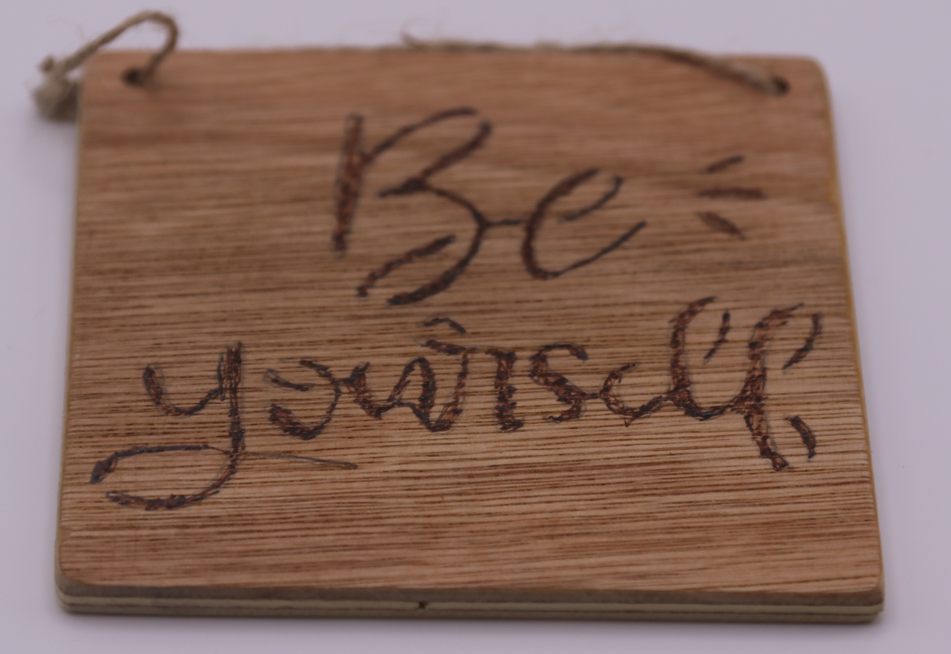 Be
yourself